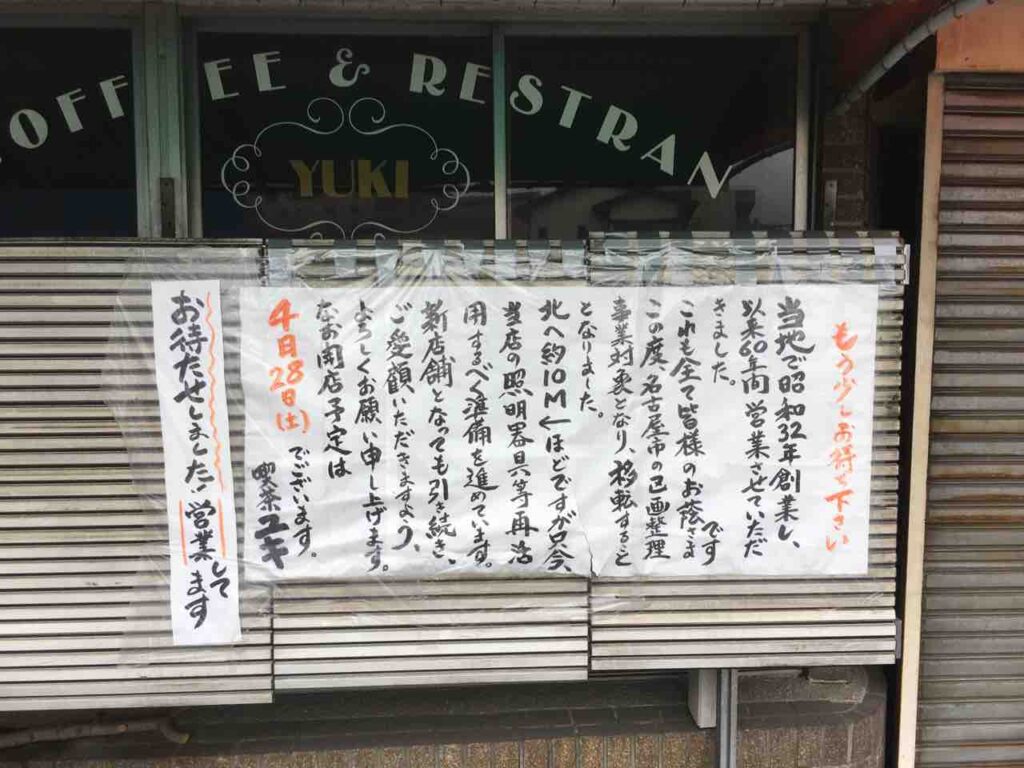 COFFEE & RESTRAN
YUKI
もう少しお待ち下さい
当地で昭和32年創業し、
以来60年間営業させていただ
きました。
これも全て皆様のお蔭さまです
この度、名古屋市の区画整理
事業対象となり、移転すること
となりました。
北へ約10M←ほどですが只今、
当店の照明器具等再活
用するべく準備を進めています。
新店舗となっても引き続き、
ご愛顧いただきますよう、
よろしくお願い申し上げます。
なお開店予定は
4月28日(土)でございます。
喫茶ユキ
お待たせしました!営業してます